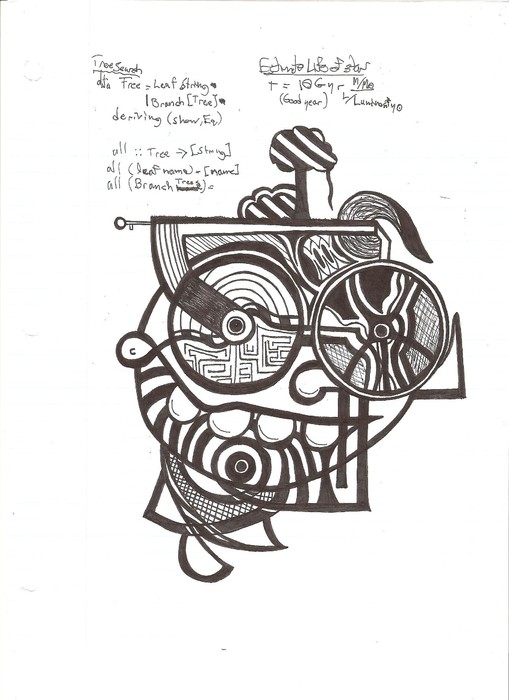 Tree Search
data Tree = Leaf String
| Branch [Tree]
deriving (show, Eq)
all :: Tree -> [String]
all (leaf name) = [name]
all (Branch Trees) =
Estimate Life of star
T = 10 Gyr M/M⊙
(Good year) L/Luminosity⊙
c